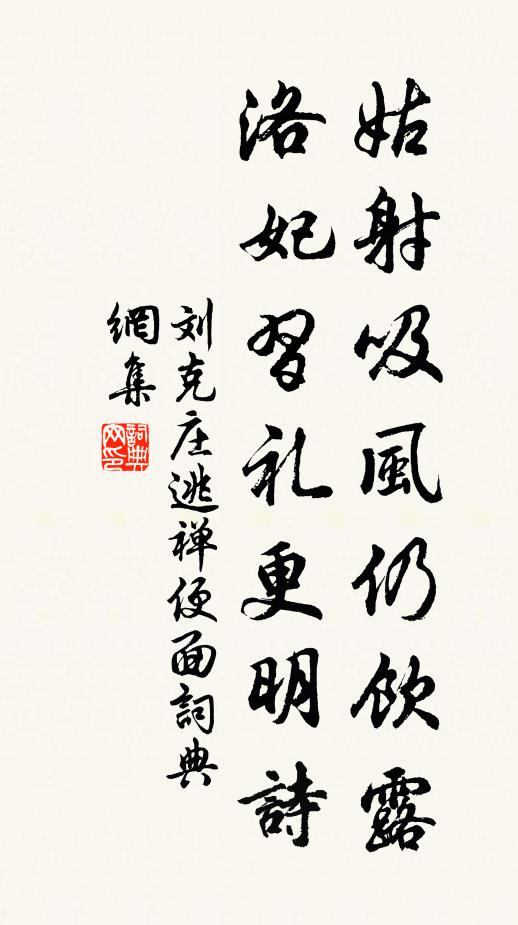 姑射吸風仍飲露
洛妃習礼更明詩
刘克庄逃禅便面詞典
網集
詞典網印